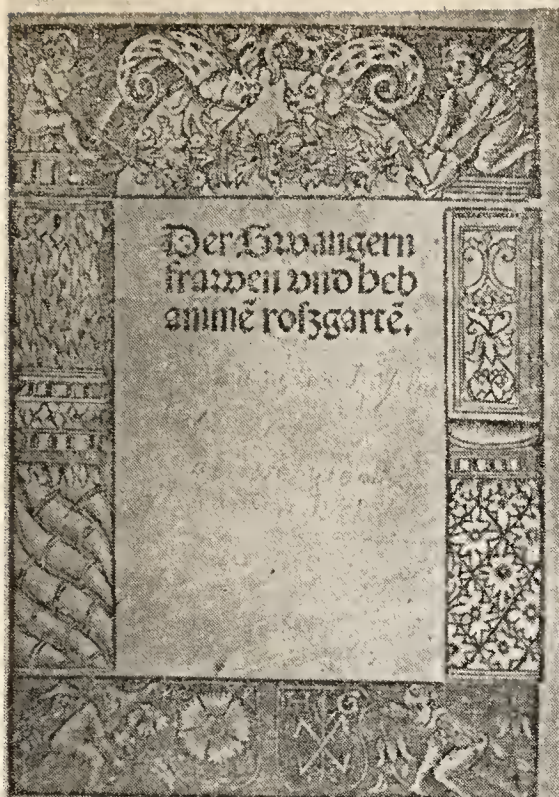 Der Swangern
frawen vnd heb
ammē roszgartē.